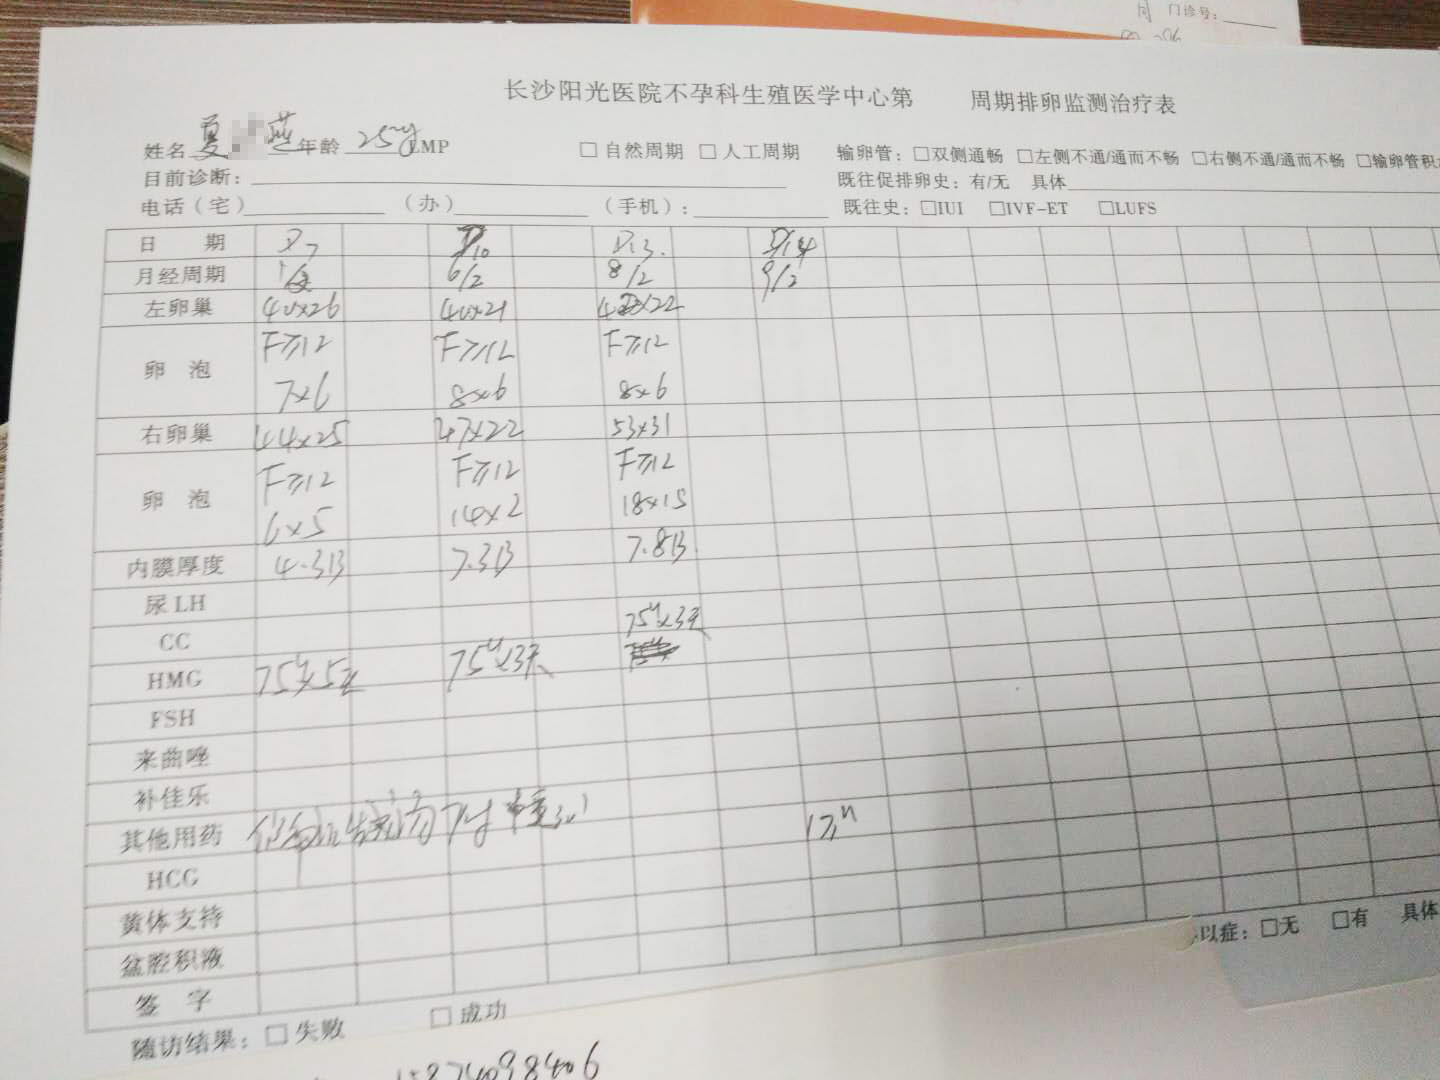 门诊号：
长沙阳光医院不孕科生殖医学中心第 周期排卵监测治疗表
姓名 夏 燕 年龄 25y LMP □ 自然周期 □ 人工周期 输卵管：□双侧通畅 □左侧不通/通而不畅 □右侧不通/通而不畅 □输卵管积
目前诊断： 既往促排卵史：有/无 具体
电话（宅） （办） （手机）： 既往史：□IUI □IVF-ET □LUFS
日 期 D7 D10 D13. D14
月经周期 6/2 8/2 9/2
左卵巢 40×26 40×21 22
卵 泡 F≥12 F≥12 F≥12
7×6 8×6 8×6
右卵巢 44×25 47×22 53×31
卵 泡 F≥12 F≥12 F≥12
6×5 14×2 18×15
内膜厚度 4.3B 7.3B 7.8B
尿 LH
CC 75u×3天
HMG 75u×5天 75u×3天
FSH
来曲唑
补佳乐
其他用药
HCG
黄体支持
盆腔积液 以症：□无 □有 具体
签 字
随访结果：□ 失败 □ 成功
15874098406